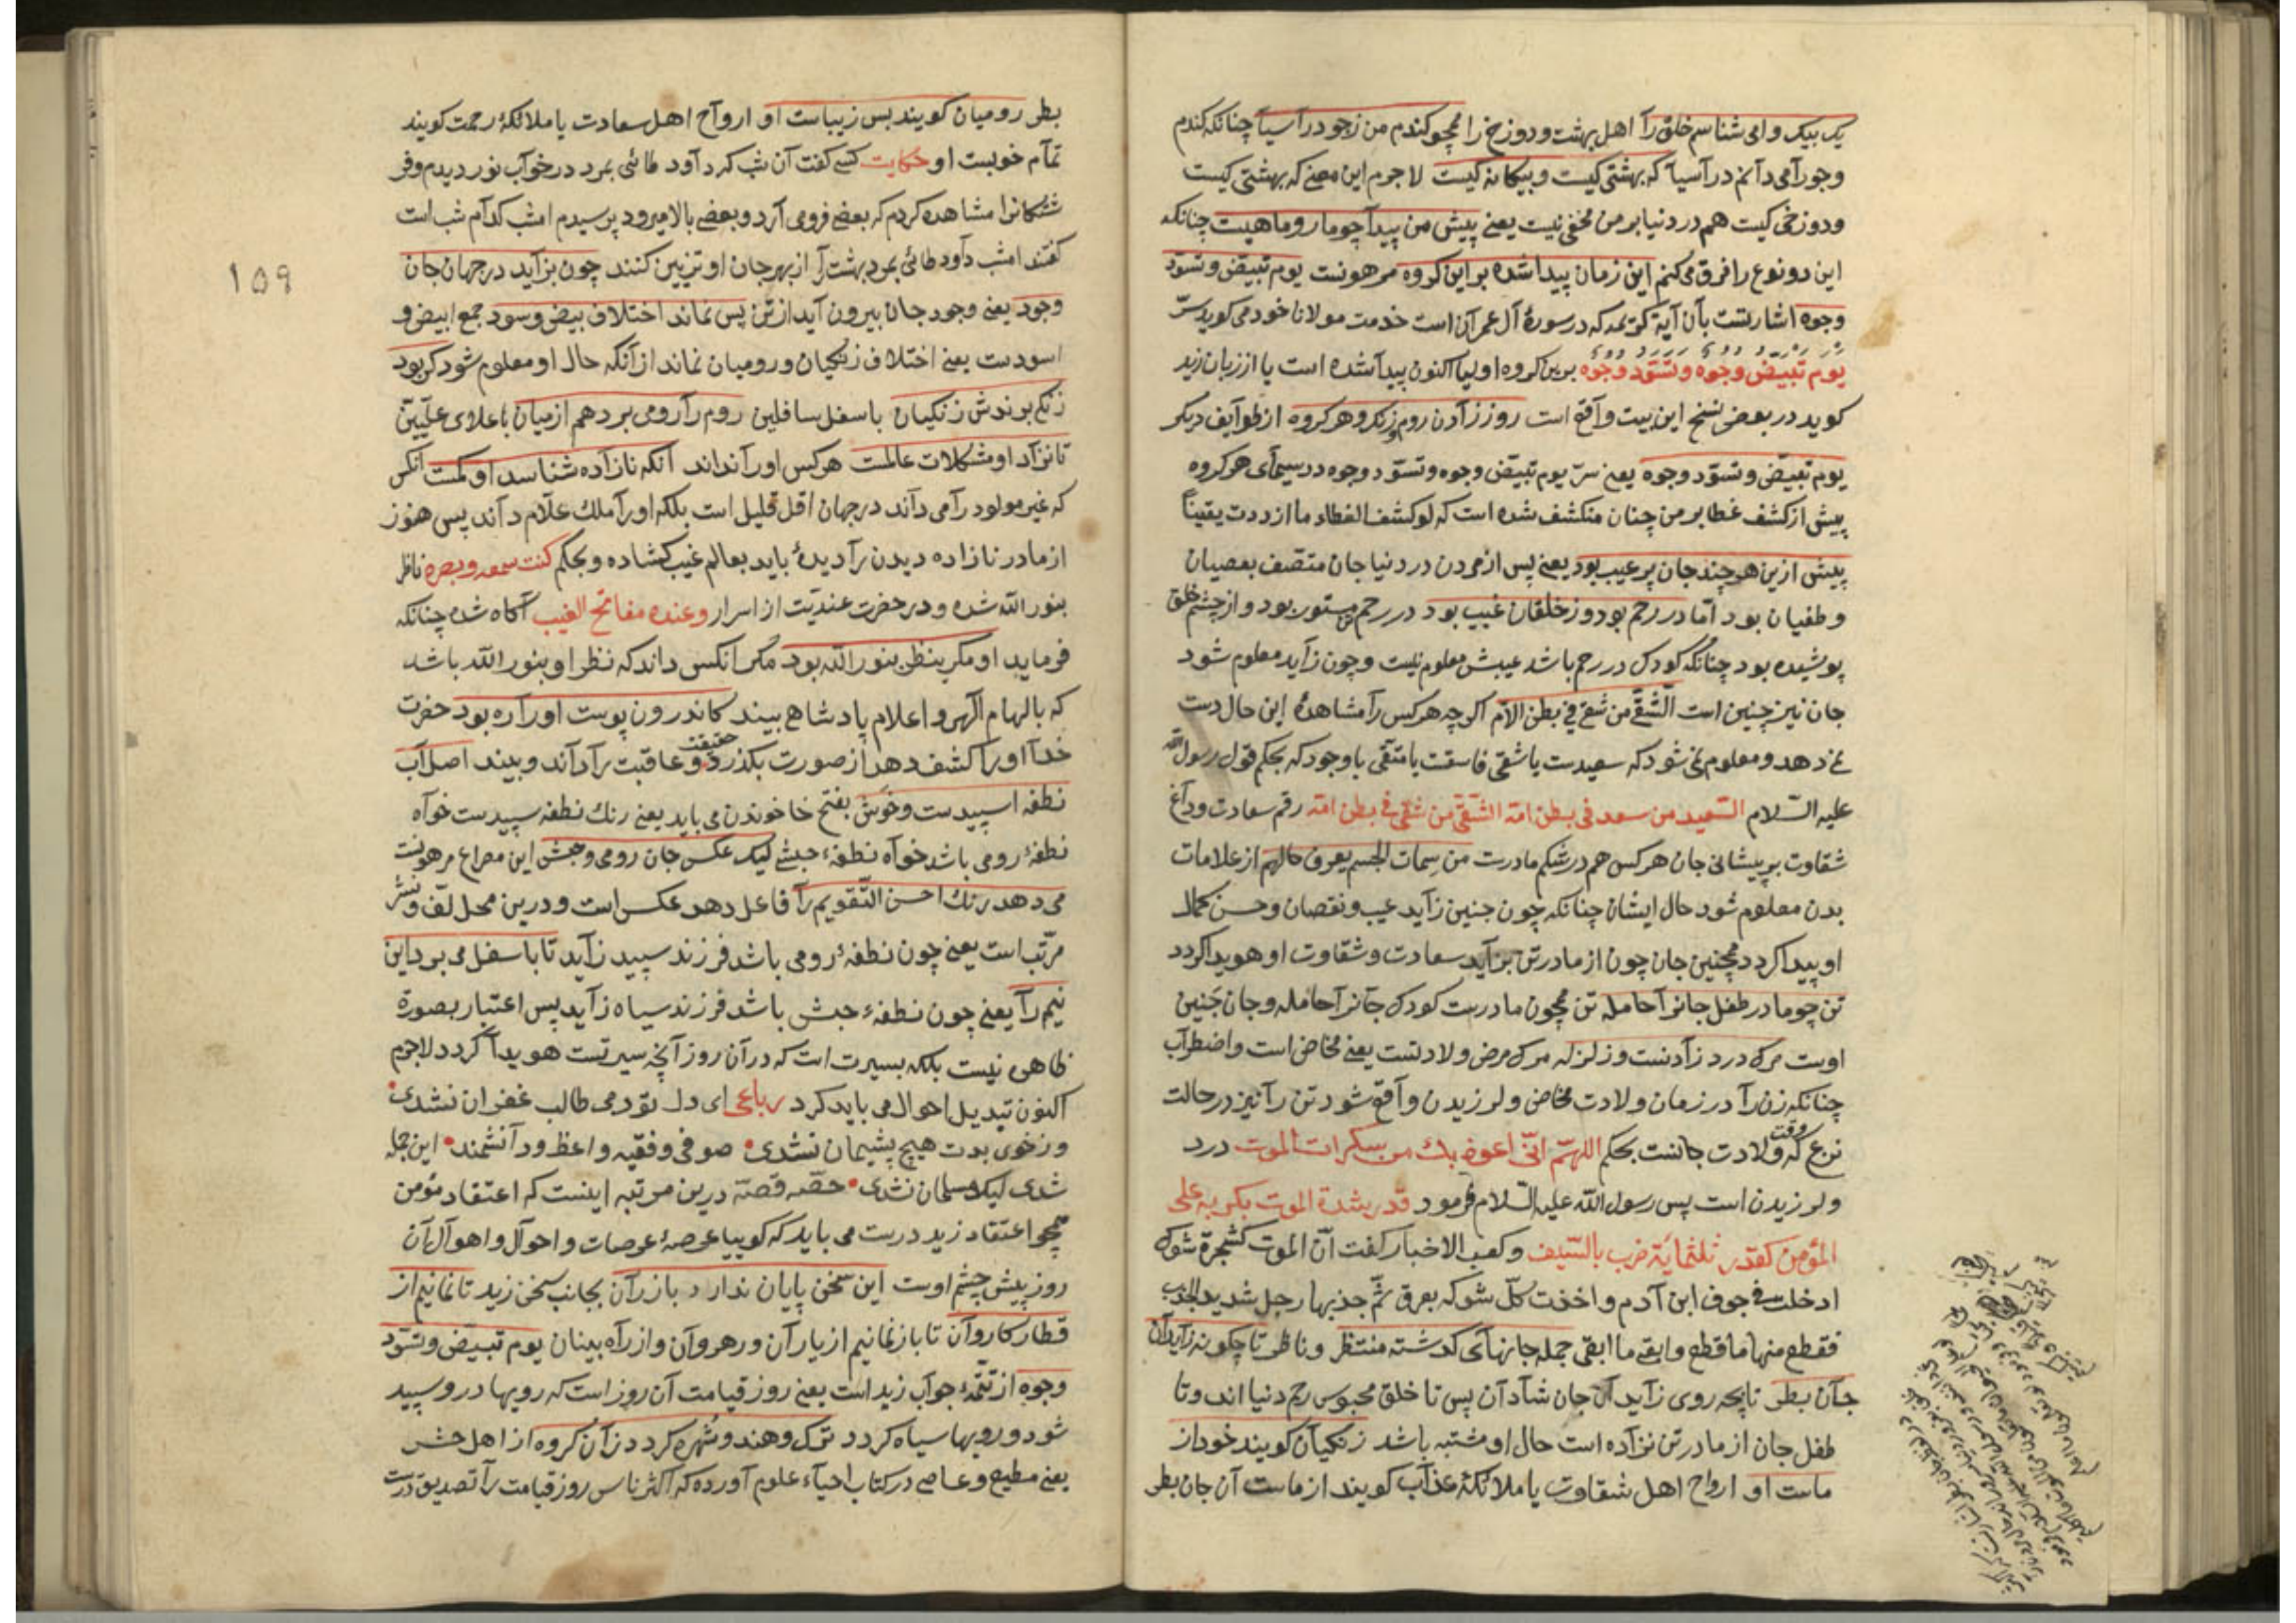 یک بیک وامی شناسم خلق را اهل بهشت و دوزخ را همچو کندم من زجو در آسیا چنانکه کندم
وجو را می دانم در آسیا که بهشتی کیست و بیکانه کیست لاجرم این معنے که بهشتی کیست
ودوزخی کیست هم در دنیا بر من مخفی نیست یعنے پیش من پیدا چو مار و ماهیست چنانکه
این دو نوع را فرق می کنم این زمان پیدا شده بر این کروه مرهونست یوم تبیض و تسود
وجوه اشارتست بآن آیة کریمه که در سورهٔ آل عمران است خدمت مولانا خود می کوید سرّ
یوم تبیضّ وجوه وتسودّ وجوه برین کروه اولیا اکنون پیدا شده است یا از زبان زید
کوید در بعض نسخ این بیت واقع است روز زادن روم و زنک و هر کروه از طوایف دیکر
یوم تبیضّ و تسودّ وجوه یعنے سرّ یوم تبیضّ وجوه وتسودّ وجوه در سیمای هر کروه
پیش از کشف غطا بر من چنان منکشف شده است که لو کشف الغطاء ما ازددت یقیناً
پیش ازین هر چند جان پر عیب بود یعنے پس از مردن در دنیا جان متصف بعصیان
وطغیان بود امّا در رحم بود و ز خلقان غیب بود در رحم مستور بود و از چشم خلق
پوشیده بود چنانکه کودک در رحم باشد عیبش معلوم نیست و چون زاید معلوم شود
جان نیز چنین است الشّقی من شقی فی بطن الام اکر چه هر کس را مشاهدهٔ این حال دست
نمی دهد و معلوم نمی شود که سعیدست یا شقی فاسقست یا متّقی با وجود که بحکم قول رسول الله
علیه السّلام السّعید من سعد فی بطن امّه الشّقی من شقی فی بطن امّه رقم سعادت و داغ
شقاوت بر پیشانی جان هر کس هم در شکم مادرست من سمات الجسم یعرف حالهم از علامات
بدن معلوم شود حال ایشان چنانکه چون جنین زاید عیب و نقصان و حسن و کمال
او پیدا کردد همچنین جان چون از مادر تن بزاید سعادت و شقاوت او هویدا کردد
تن چو مادر طفل جانرا حامله تن همچون مادرست کودک جانرا حامله و جان جنین
اوست مرک درد زادنست و زلزله مرک مرض ولادتست یعنے مخاض است و اضطراب
چنانکه زن را در زمان ولادت مخاض و لرزیدن واقع شود تن را نیز در حالت
نزع که وقت ولادت جانست بحکم اللهمّ انّی اعوذ بک من سکرات الموت درد
ولرزیدن است پس رسول الله علیه السّلام فرمود قدر شدة الموت بکربه علی
المؤمن کقدر ثلثمایة ضرب بالسّیف و کعب الاخبار کفت انّ الموت کشجرة شوک
ادخلت فی جوف ابن آدم و اخذت کلّ شوکه بعرق ثمّ جذبها رجل شدید الجذب
فقطع منها ما قطع و ابقے ما ابقی جمله جانهای کذشته منتظر و ناظر تا چکونه زاید آن
جان بطر تا بچه روی زاید آن جان شاد آن پس تا خلق محبوس رحم دنیا اند و تا
طفل جان از مادر تن نزاده است حال او مشتبه باشد زنکیان کویند خود از
ماست او ارواح اهل شقاوت یا ملائکهٔ عذاب کویند از ماست آن جان بطر
بطر رومیان کویند بس زیباست او ارواح اهل سعادت یا ملائکهٔ رحمت کویند
تمام خوبست او حکایت کسے کفت آن شب که داود طائی بمرد در خواب نور دیدم و فر
شتکانرا مشاهده کردم که بعضے فرو می آرد و بعضے بالا میرود پرسیدم امشب کدام شب است
کفتند امشب داود طائی بمرد بهشت را از بهر جان او تزیین کنند چون بزاید در جهان جان
وجود یعنے وجود جان بیرون آید از تن پس نماند اختلاف بیض و سود جمع ابیض و
اسودست یعنے اختلاف زنکیان و رومیان نماند از آنکه حال او معلوم شود کر بود
زنکے برندش زنکیان باسفل سافلین روم را رومی برد هم از میان باعلای علّیین
تا نزاد او مشکلات عالمست هر کس او را نداند آنکه نازاده شناسد او کمست آنکس
که غیر مولود را می داند در جهان اقل قلیل است بلکه او را ملک علّام داند پس هنوز
از مادر نازاده دیدن را دیدهٔ باید بعالم غیب کشاده و بحکم کنت سمعه و بصره ناظر
بنور الله شده و در حضرت عندیّت از اسرار وعنده مفاتح الغیب آکاه شده چنانکه
فرماید او مکر ینظر بنور الله بود مکر آنکس داند که نظر او بنور الله باشد
که بالهام الهی و اعلام پادشاهے بیند کاندرون پوست او را ره بود حضرت
خدا او را کشف دهد از صورت بکذرد و حقیقت و عاقبت را داند و بیند اصل آب
نطفه اسپیدست و خوش بفتح خا خوندن می باید یعنے رنک نطفه سپیدست خواه
نطفهٔ رومی باشد خواه نطفهٔ حبشے لیک عکس جان رومی و حبش این مصراع مرهونست
می دهد رنک احسن التّقویم را فاعل دهد عکس است و درین محل لفّ و نشر
مرتّب است یعنے چون نطفهٔ رومی باشد فرزند سپید زاید تا باسفل می برد این
نیم را یعنے چون نطفهٔ حبش باشد فرزند سیاه زاید پس اعتبار بصورة
ظاهری نیست بلکه بسیرت است که در آن روز آنچه سیرتست هویدا کردد لاجرم
اکنون تبدیل احوال می باید کرد رباعی ای دل تو دمی طالب غفران نشدی
وز خوی بدت هیچ پشیمان نشدی صوفی و فقیه و اعظ و دانشمند این جمله
شدی لیک مسلمان نشدی حصّه قصّه درین مرتبه اینست که اعتقاد مؤمن
همچو اعتقاد زید درست می باید که کوییا عرصهٔ عرصات و احوال و اهوال آن
روز پیش چشم اوست این سخن پایان ندارد باز ران بجانب سخن زید تا نمانیم از
قطار کاروان تا باز نمانیم از یاران و رهروان و از راه بینان یوم تبیضّ و تسودّ
وجوه از تتمّهٔ جواب زید است یعنے روز قیامت آن روز است که رویها در و سپید
شود و رویها سیاه کردد ترک و هند و شهره کردد زان کروه از اهل حشر
یعنے مطیع و عاصے در کتاب احیاء علوم آورده که اکثر ناس روز قیامت را تصدیق درست
۱۵۹